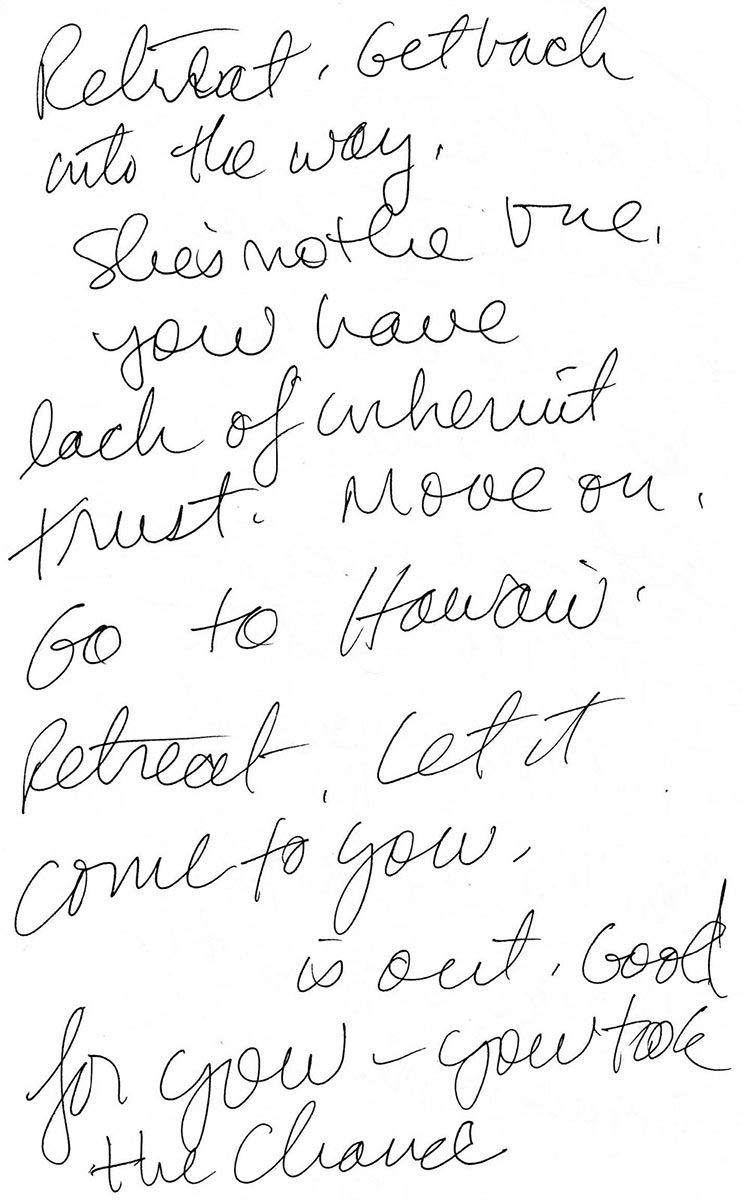 Retreat. Get back
into the way.
She's not the one.
you have
lack of inherint
trust. Move on.
Go to Hawaii.
Retreat. Let it
come to you.
is out. Good
for you – you took
the Chance